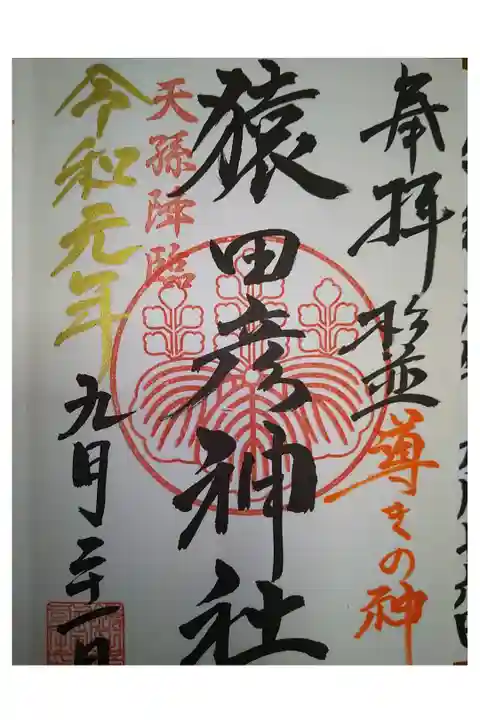 奉拝 杉並 導きの神
猿田彦神社
天孫降臨
令和元年 九月二十一日